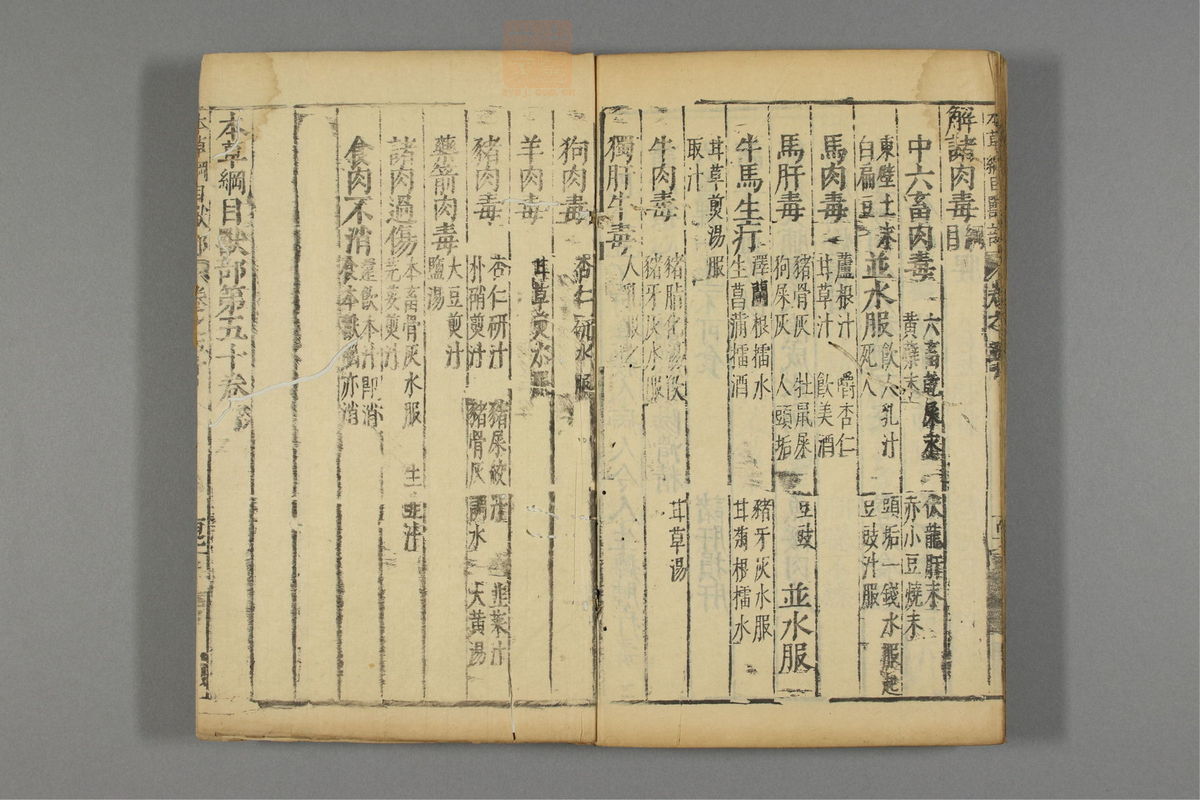 解諸肉毒 綱目
中六畜肉毒 六畜乾屎末 伏龍肝末 黃蘗末 赤小豆燒末
東壁土末 白扁豆 並水服 飲人乳汁 頭垢一錢水服起死人 豆豉汁服
馬肉毒 蘆根汁 嚼杏仁 甘草汁 飲美酒
馬肝毒 豬骨灰 牡鼠屎 豆豉 狗屎灰 人頭垢 並水服
牛馬生疔 澤蘭根擂水 豬牙灰水服 生菖蒲擂酒 甘菊根擂水
甘草煎湯服 取汁
牛肉毒 豬脂化湯飲 甘草湯 豬牙灰水服
獨肝牛毒 人乳服之
狗肉毒 杏仁研水服
羊肉毒 甘草煎水服
豬肉毒 杏仁研汁 豬屎絞汁 韭菜汁 朴硝煎汁 豬骨灰調水 大黃湯
藥箭肉毒 大豆煎汁 鹽湯
諸肉過傷 本畜骨灰水服 生韭汁 芫荽煎汁
食肉不消 還飲本汁即消 食本獸腦亦消
本草綱目獸部第五十卷